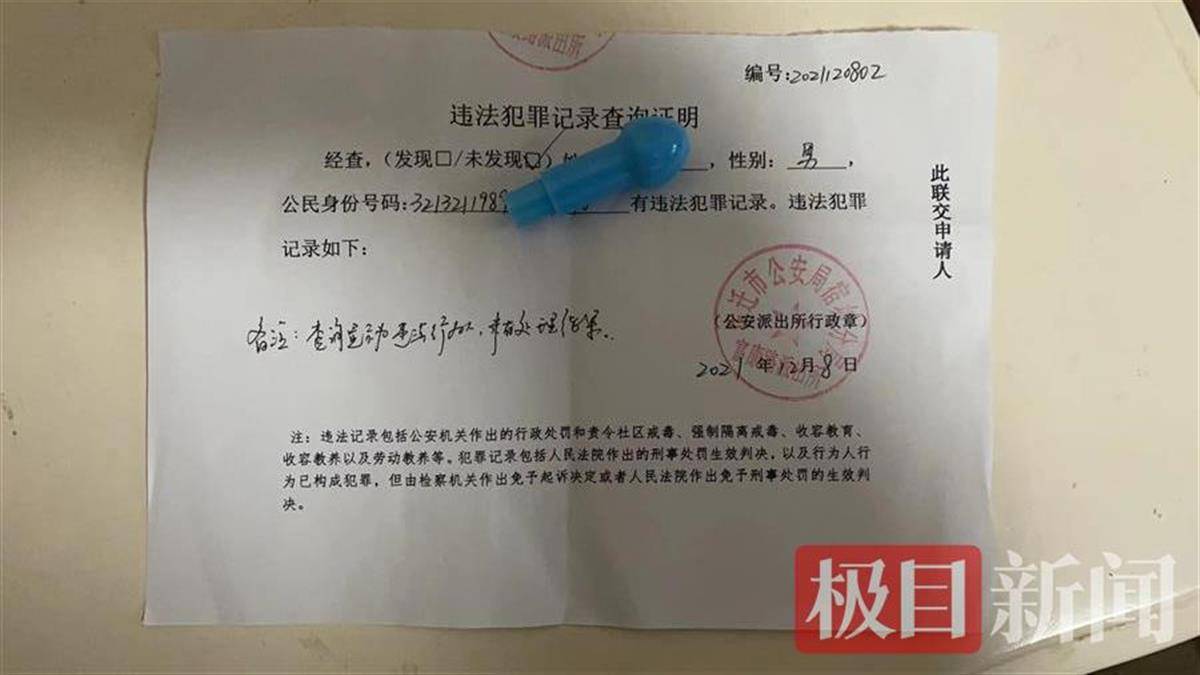 派出所
编号:2021120802
违法犯罪记录查询证明
经查,(发现口/未发现口) ,性别: 男 ,
公民身份号码:3213211989 有违法犯罪记录。违法犯罪
记录如下:
此联交申请人
迁市公安局宿 分
派出所
(公安派出所行政章)
2021年12月8日
备注: 查询 违法行为, 未有处理结果.
注:违法记录包括公安机关作出的行政处罚和责令社区戒毒、强制隔离戒毒、收容教育、
收容教养以及劳动教养等。犯罪记录包括人民法院作出的刑事处罚生效判决,以及行为人行
为已构成犯罪,但由检察机关作出免予起诉决定或者人民法院作出免予刑事处罚的生效判
决。
极目新闻